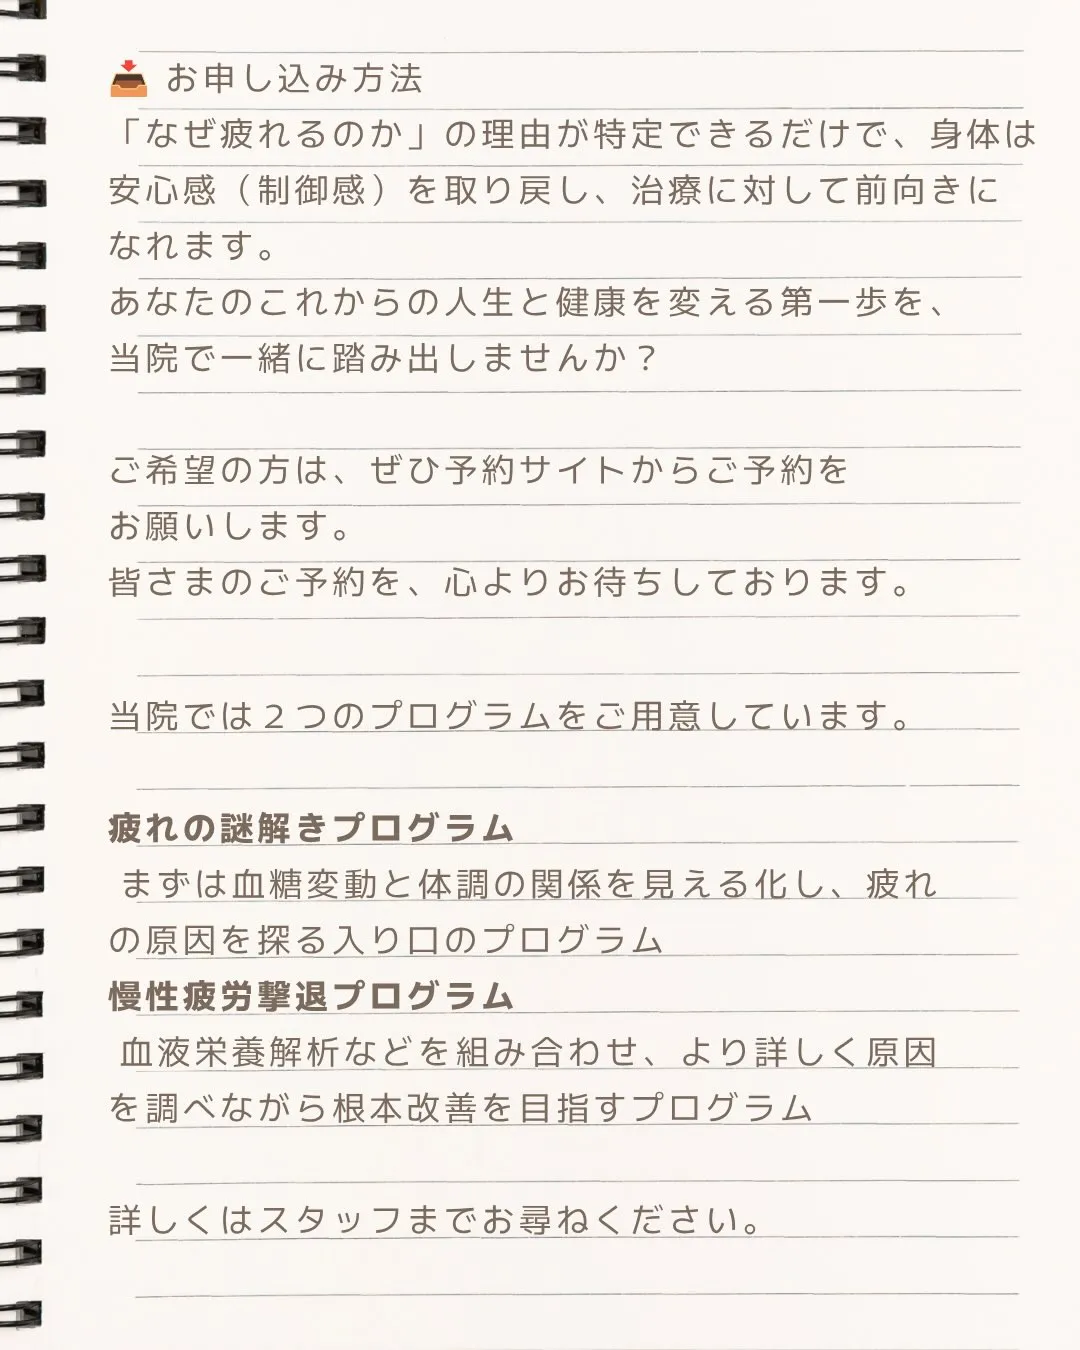 📥 お申し込み方法
「なぜ疲れるのか」の理由が特定できるだけで、身体は
安心感（制御感）を取り戻し、治療に対して前向きに
なれます。
あなたのこれからの人生と健康を変える第一歩を、
当院で一緒に踏み出しませんか？
ご希望の方は、ぜひ予約サイトからご予約を
お願いします。
皆さまのご予約を、心よりお待ちしております。
当院では２つのプログラムをご用意しています。
疲れの謎解きプログラム
まずは血糖変動と体調の関係を見える化し、疲れ
の原因を探る入り口のプログラム
慢性疲労撃退プログラム
血液栄養解析などを組み合わせ、より詳しく原因
を調べながら根本改善を目指すプログラム
詳しくはスタッフまでお尋ねください。